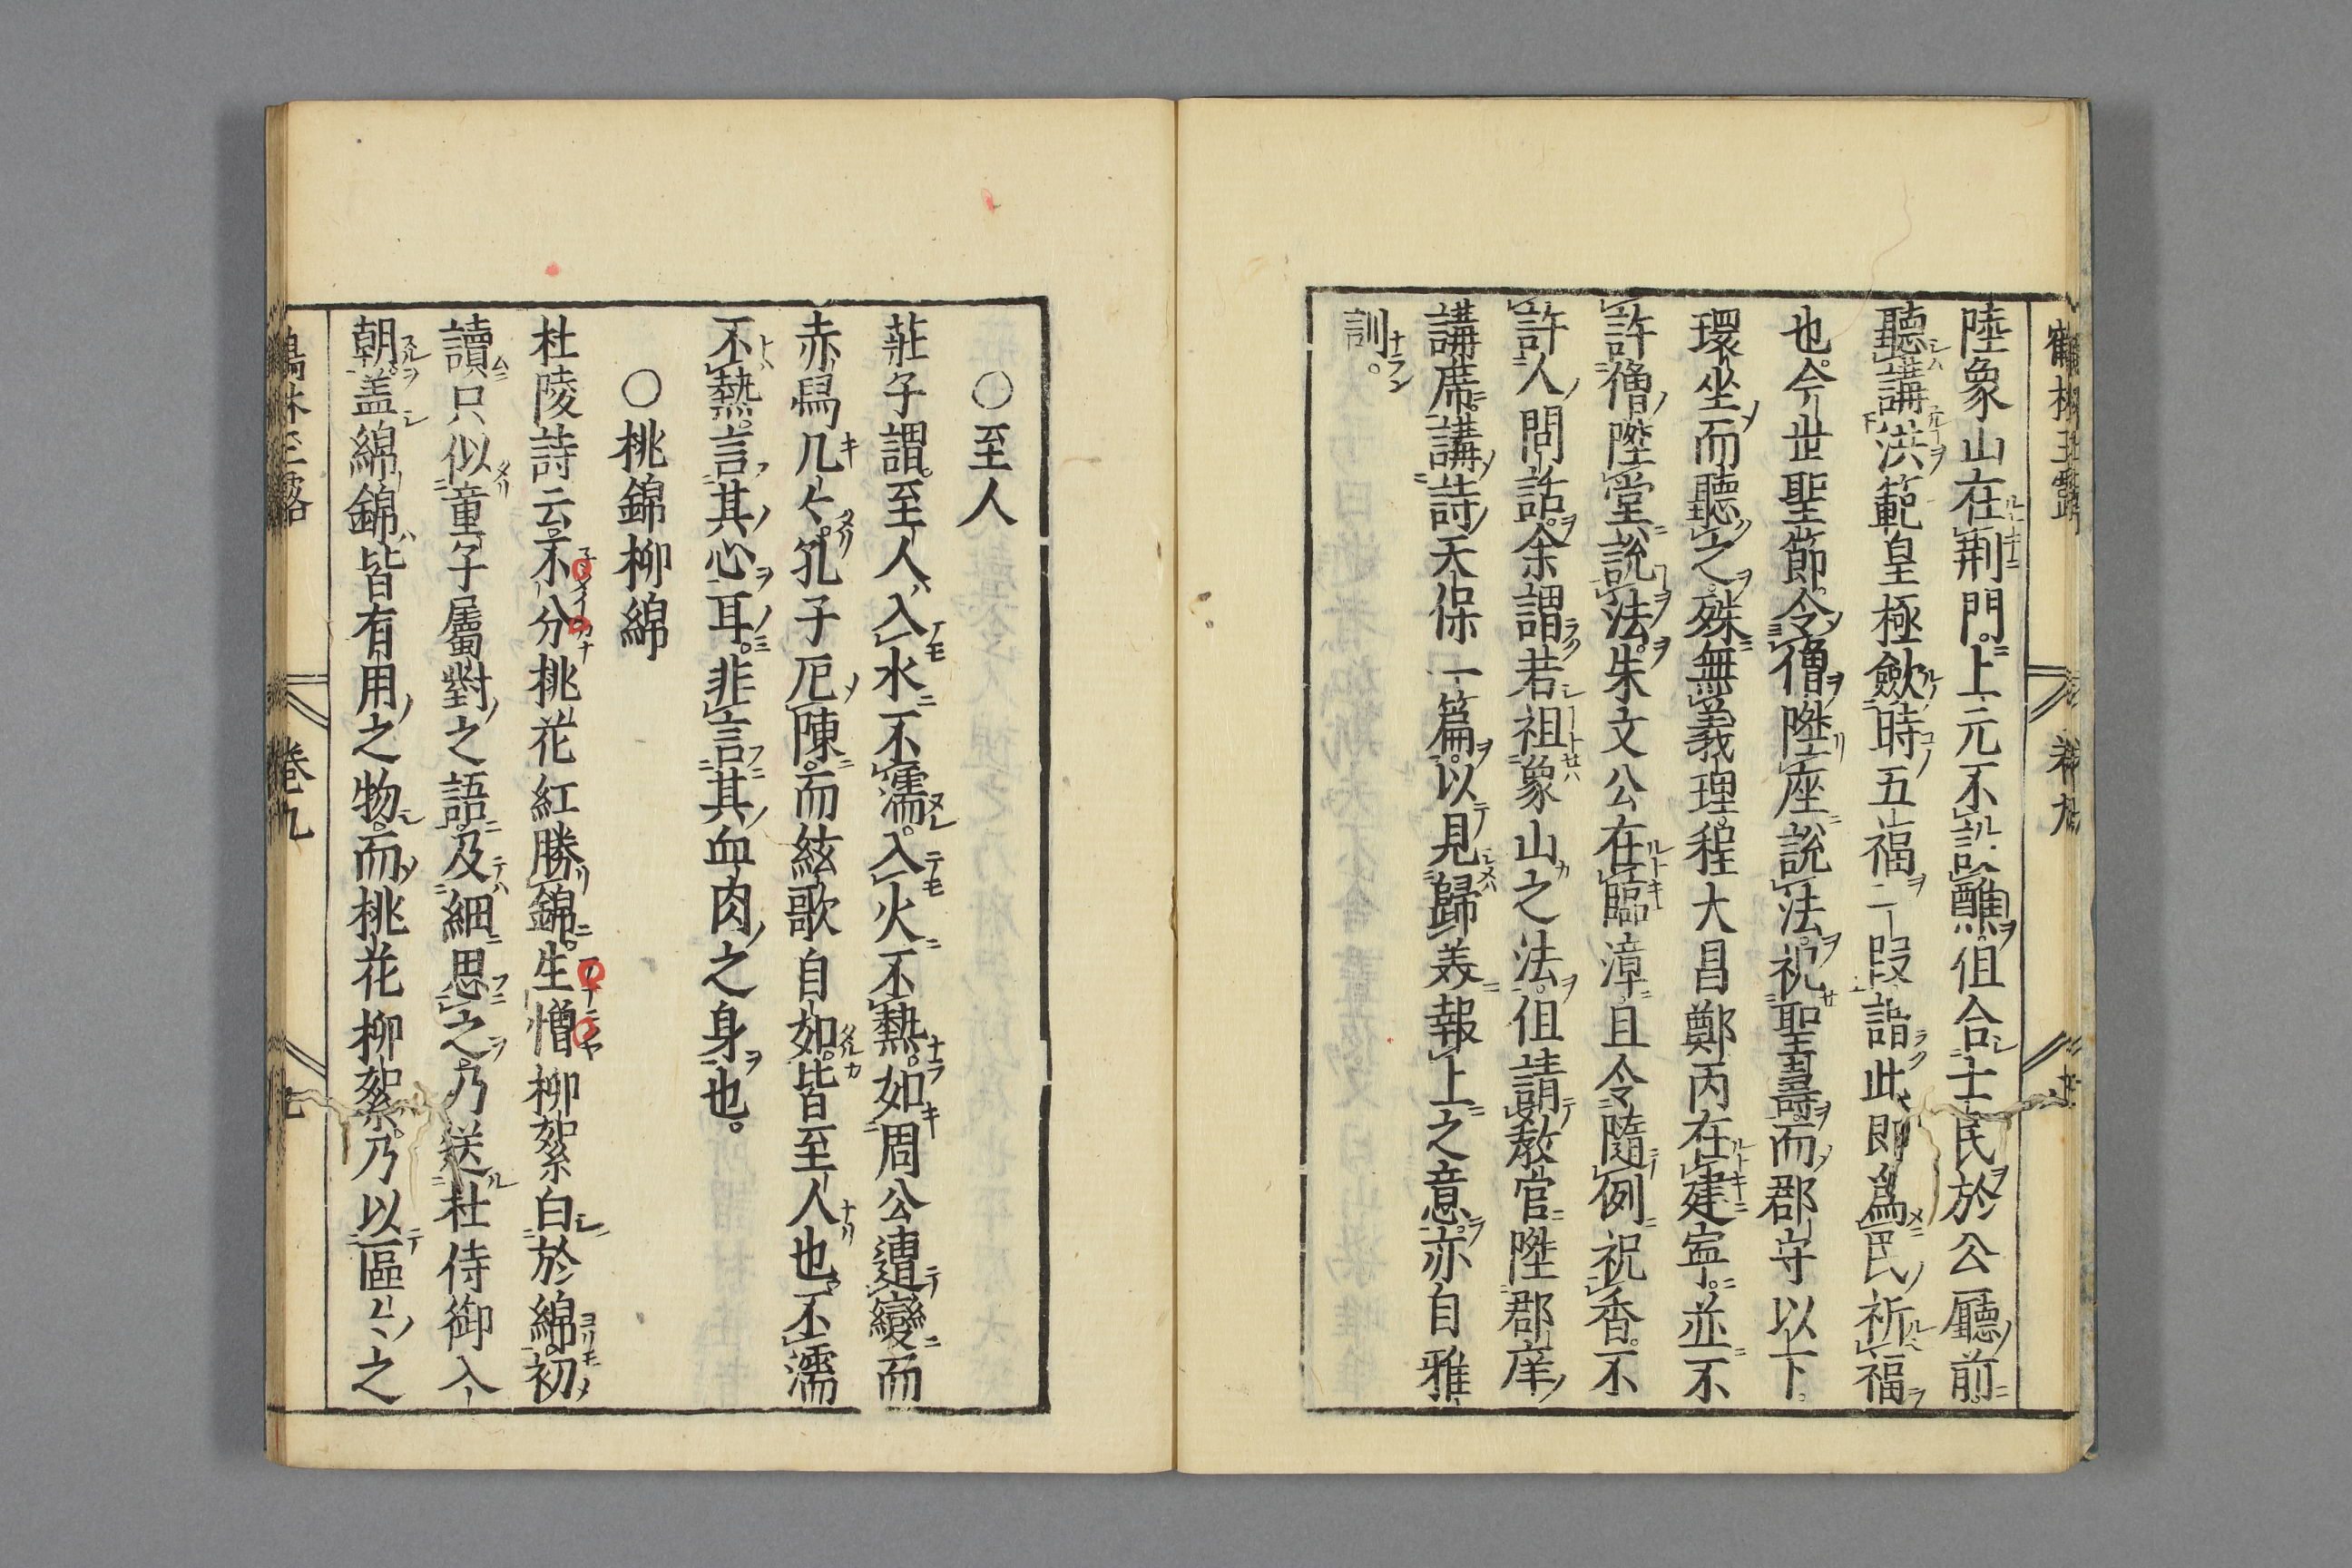 陸象山在荆門。上元不設醮。但合士民於公廳前。
聽講洪範皇極歛時五福一段。謂此即爲民祈福
也。今世聖節。令僧陞座說法。祝聖壽。而郡守以下。
環坐而聽之。殊無義理。程大昌鄭丙在建寧。並不
許僧陞堂說法。朱文公在臨漳。且令隨例祝香。不
許人問話。余謂若祖象山之法。但請教官陞郡庠
講席。講詩天保一篇。以見歸美報上之意。亦自雅
訓。
○至人
莊子謂。至人入水不濡。入火不熱。如周公遭變而
赤舄几几。孔子厄陳。而絃歌自如。皆至人也。不濡
不熱。言其心耳。非言其血肉之身也。
○桃錦柳綿
杜陵詩云。不分桃花紅勝錦。生憎柳絮白於綿。初
讀只似童子屬對之語。及細思之。乃送杜侍御入
朝。盖綿錦皆有用之物。而桃花柳絮。乃以區區之
鶴林玉露 卷九